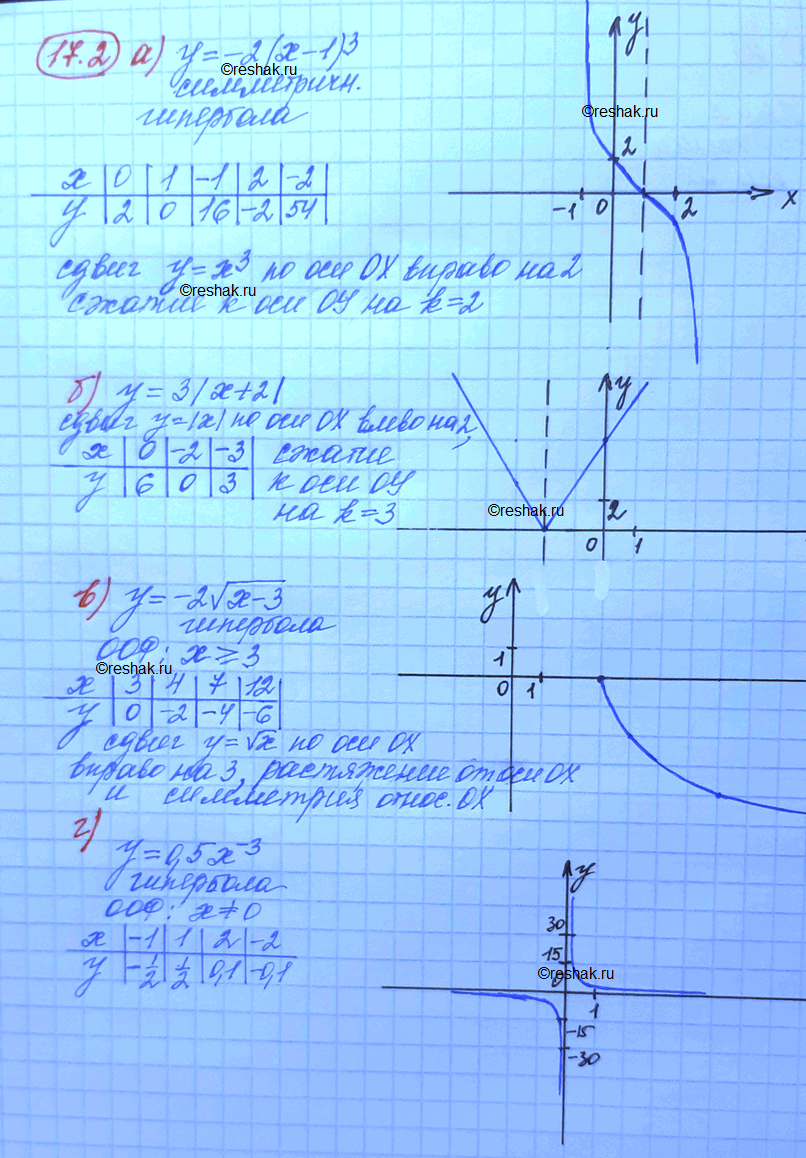 17.2 а) y = -2(x-1)³
©reshak.ru
симметричн.
гипербола
x | 0 | 1 | -1 | 2 | -2
y | 2 | 0 | 16 | -2 | 54
сдвиг y = x³ по оси OX вправо на 2
©reshak.ru
сжатие к оси OY на k=2
y
©reshak.ru
2
-1 0 2 x
б) y = 3|x+2|
сдвиг y=|x| по оси OX влево на 2,
x | 0 | -2 | -3 | сжатие
y | 6 | 0 | 3 | к оси OY
на k=3
y
©reshak.ru
2
0 1
в) y = -2√x-3
гипербола
ООФ: x ≥ 3
©reshak.ru
x | 3 | 4 | 7 | 12
y | 0 | -2 | -4 | -6
сдвиг y = √x по оси OX
вправо на 3, растяжение от оси OX
и симметрия относ. OX
y
1
0 1
г)
y = 0,5x⁻³
гипербола
ООФ: x ≠ 0
x | -1 | 1 | 2 | -2
y | -1/2 | 1/2 | 0,1 | -0,1
y
30
15
©reshak.ru
0
1
-15
-30